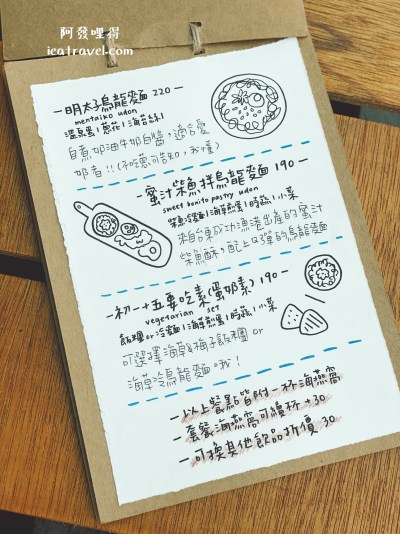 阿發哩得
icatravel.com
-明太子烏龍麵 220-
mentaiko udon
溫泉蛋/蔥花/海苔絲/
自煮奶油牛奶白醬,適合愛
奶者!!(不吃蔥可告知,我懂)
-蜜汁柴魚拌烏龍麵 190-
sweet bonito pastry udon
柴魚冷麵/海鮮煎蛋/時蔬/小菜
來自台東成功漁港出產的蜜汁
柴魚酥,配上Q彈的烏龍麵
-初一十五要吃素(蛋奶素)190-
vegetarian set
飯糰or冷麵/海鮮煎蛋/時蔬/小菜
可選擇海草&梅子飯糰 or
海草冷烏龍麵哦!
-以上餐點皆附一杯海燕窩
-套餐海燕窩可續杯 +30
-可換其他飲品折價 30